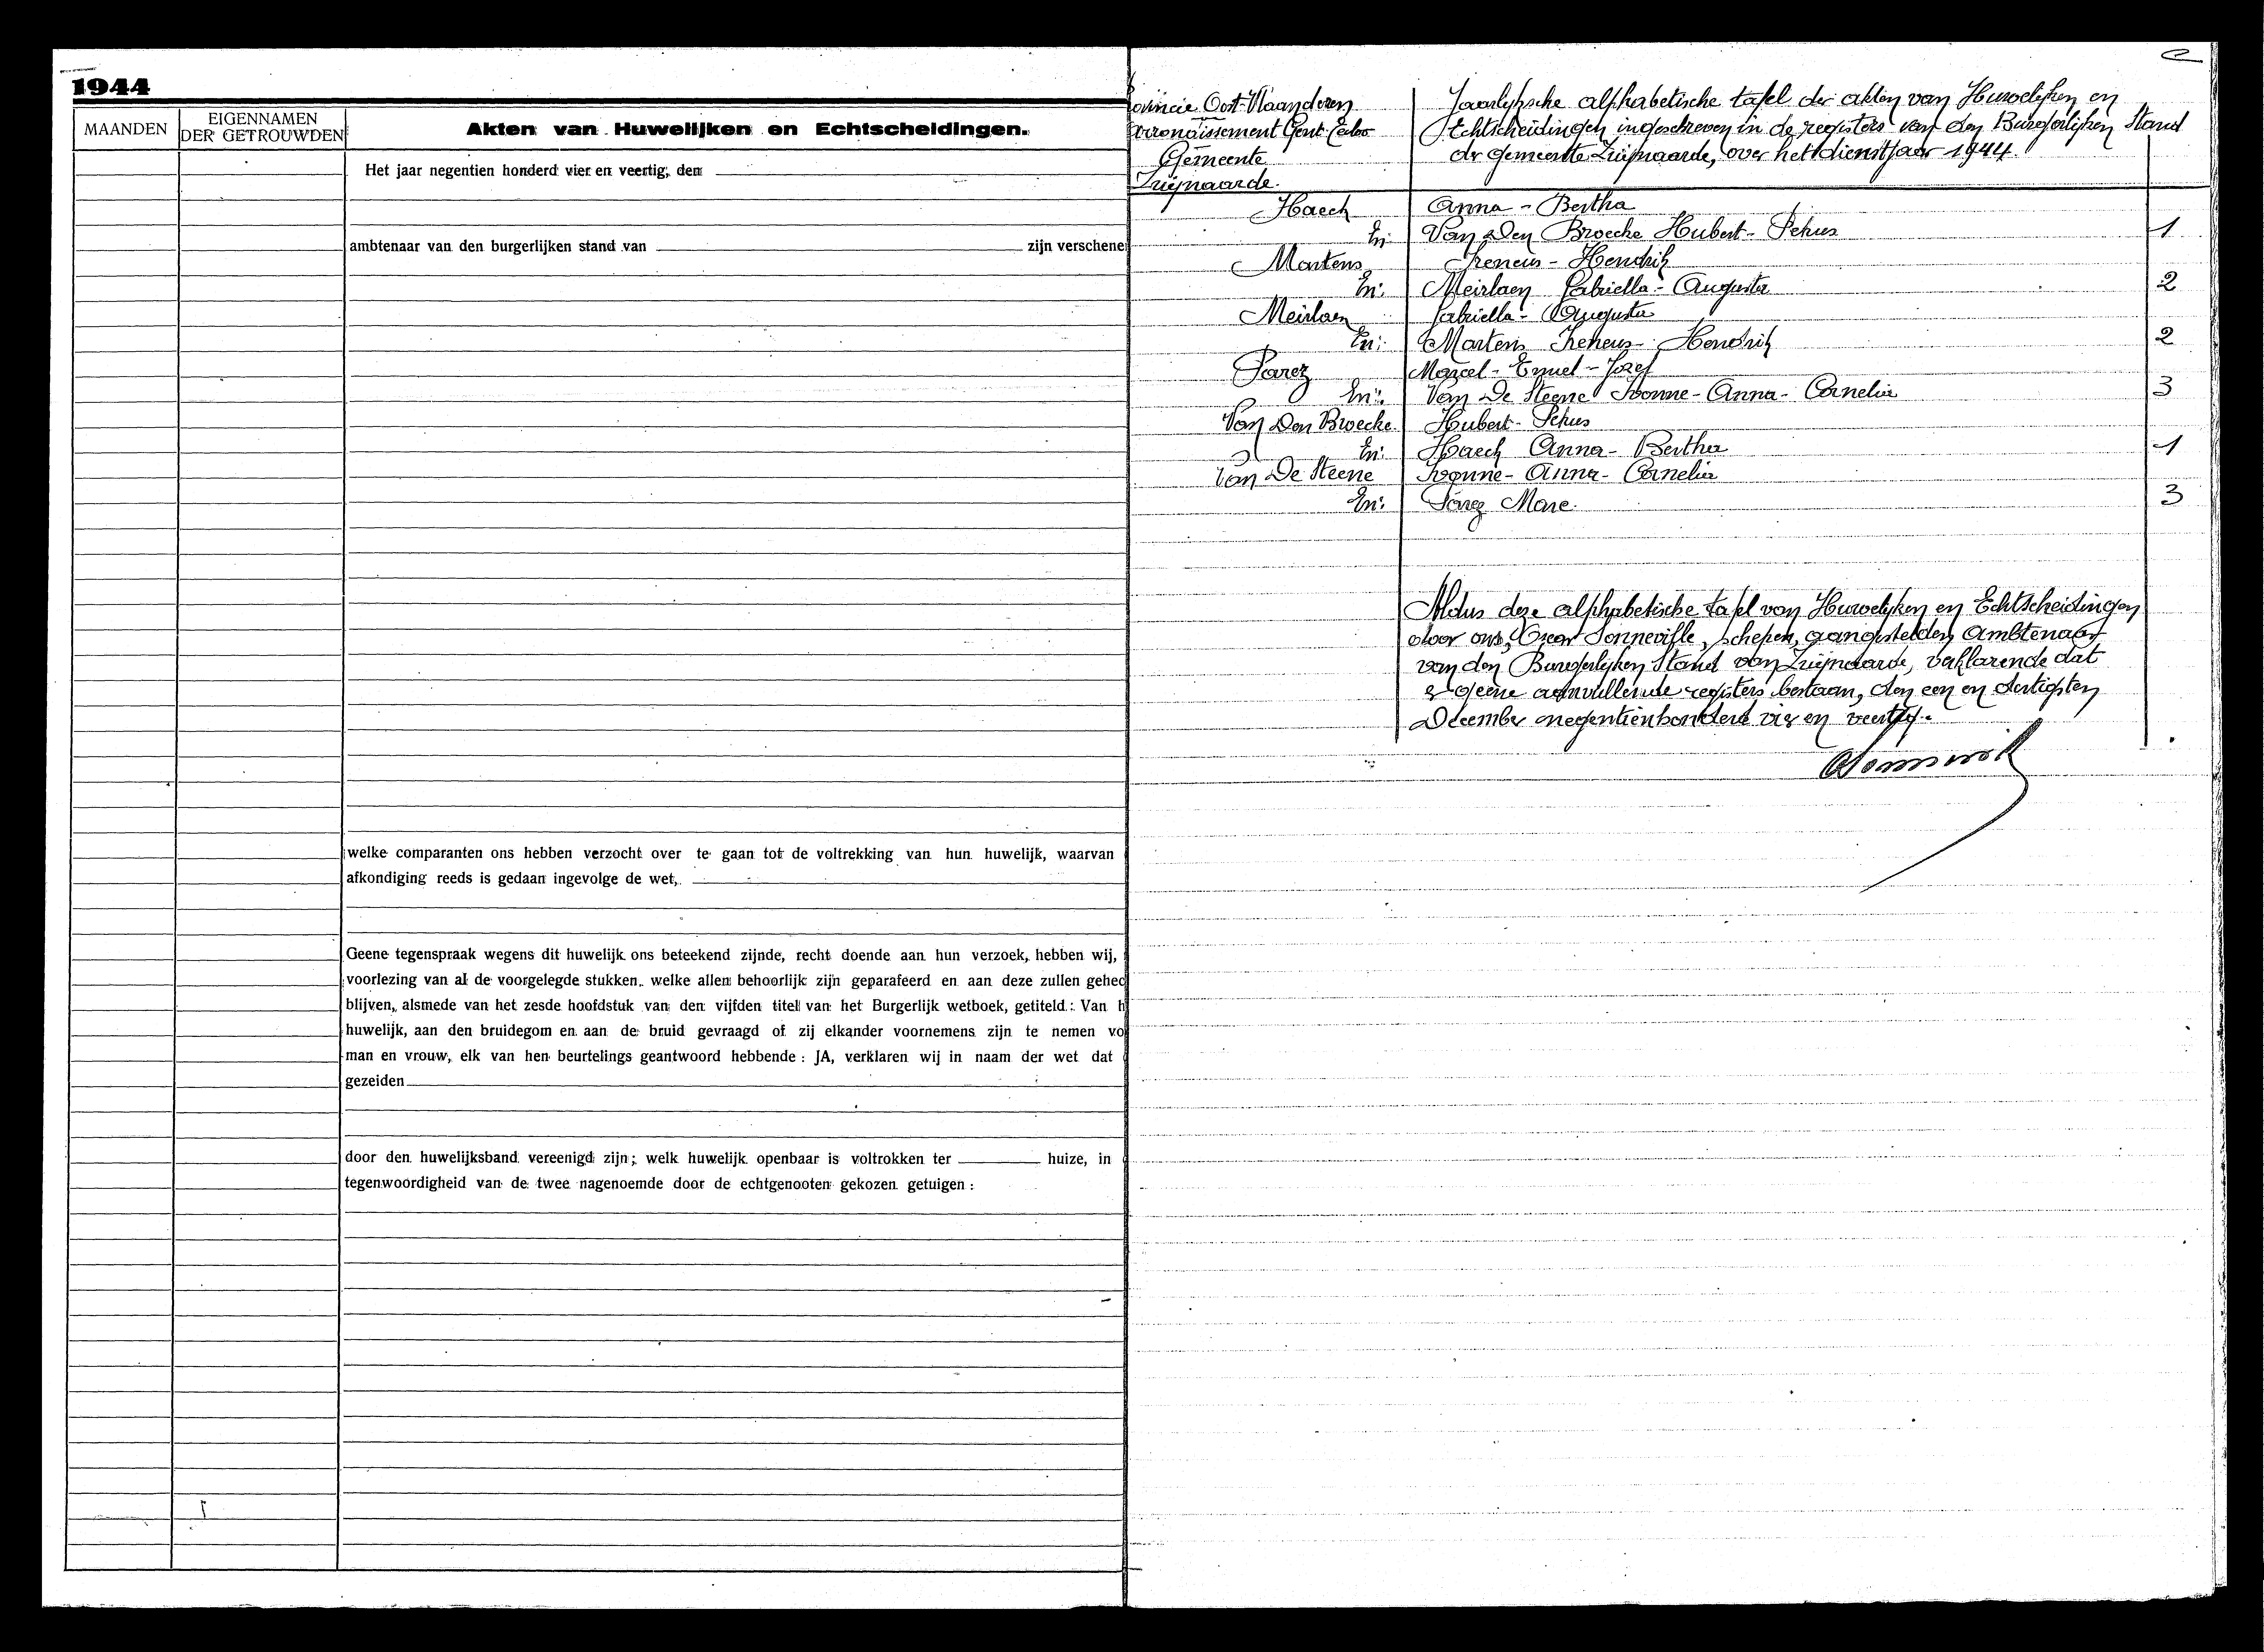 1944
MAANDEN
EIGENNAMEN
DER GETROUWDEN
Akten van Huwelijken en Echtscheidingen.
Het jaar negentien honderd vier en veertig, den
ambtenaar van den burgerlijken stand van zijn verschene
welke comparanten ons hebben verzocht over te gaan tot de voltrekking van hun huwelijk, waarvan
afkondiging reeds is gedaan ingevolge de wet,
Geene tegenspraak wegens dit huwelijk ons beteekend zijnde, recht doende aan hun verzoek, hebben wij,
voorlezing van al de voorgelegde stukken, welke allen behoorlijk zijn geparafeerd en aan deze zullen gehec
blijven, alsmede van het zesde hoofdstuk van den vijfden titel van het Burgerlijk wetboek, getiteld: Van h
huwelijk, aan den bruidegom en aan de bruid gevraagd of zij elkander voornemens zijn te nemen vo
man en vrouw, elk van hen beurtelings geantwoord hebbende: JA, verklaren wij in naam der wet dat
gezeiden
door den huwelijksband vereenigd zijn; welk huwelijk openbaar is voltrokken ter huize, in
tegenwoordigheid van de twee nagenoemde door de echtgenooten gekozen getuigen:
ovincie Oost-Vlaanderen
rrondissement Gent-Eeklo
Gemeente
Zwijnaarde.
Jaarlijksche alphabetische tafel der akten van Huwelijken en
Echtscheidingen ingeschreven in de registers van den Burgerlijken Stand
der gemeente Zwijnaarde, over het dienstjaar 1944.
Haeck Anna - Bertha
En: Van Den Broecke Hubert- 1
Martens Ireneus - Hendrik
En: Meirlaen Gabriella - Augusta 2
Meirlaen Gabriella - Augusta
En: Martens Ireneus - Hendrik 2
Parez Marcel - Emiel - Jozef
En: Van De Steene Ivonne - Anna - Cornelia 3
Van Den Broecke Hubert-
En: Haeck Anna - Bertha 1
Van De Steene Ivonne - Anna - Cornelia
En: Parez Marc. 3
Aldus deze alphabetische tafel van Huwelijken en Echtscheidingen
door ons, Oscar Sonneville, schepen, aangestelden Ambtenaar
van den Burgerlijken Stand van Zwijnaarde, verklarende dat
er geene aanvullende registers bestaan, den een en dertigsten
December negentienhonderd vier en veertig.